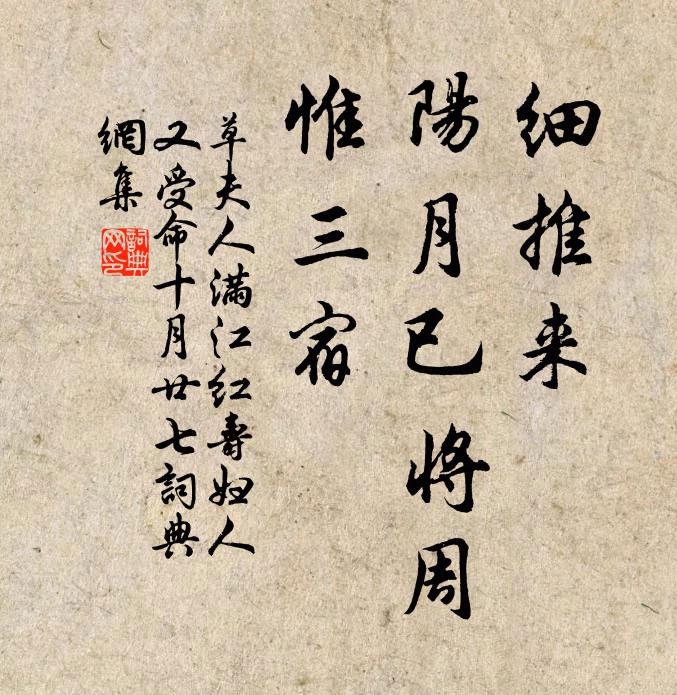 細推来
陽月已將周
惟三宿
草夫人滿江紅壽婦人
又受命十月廿七詞典
網集
詞典
网印